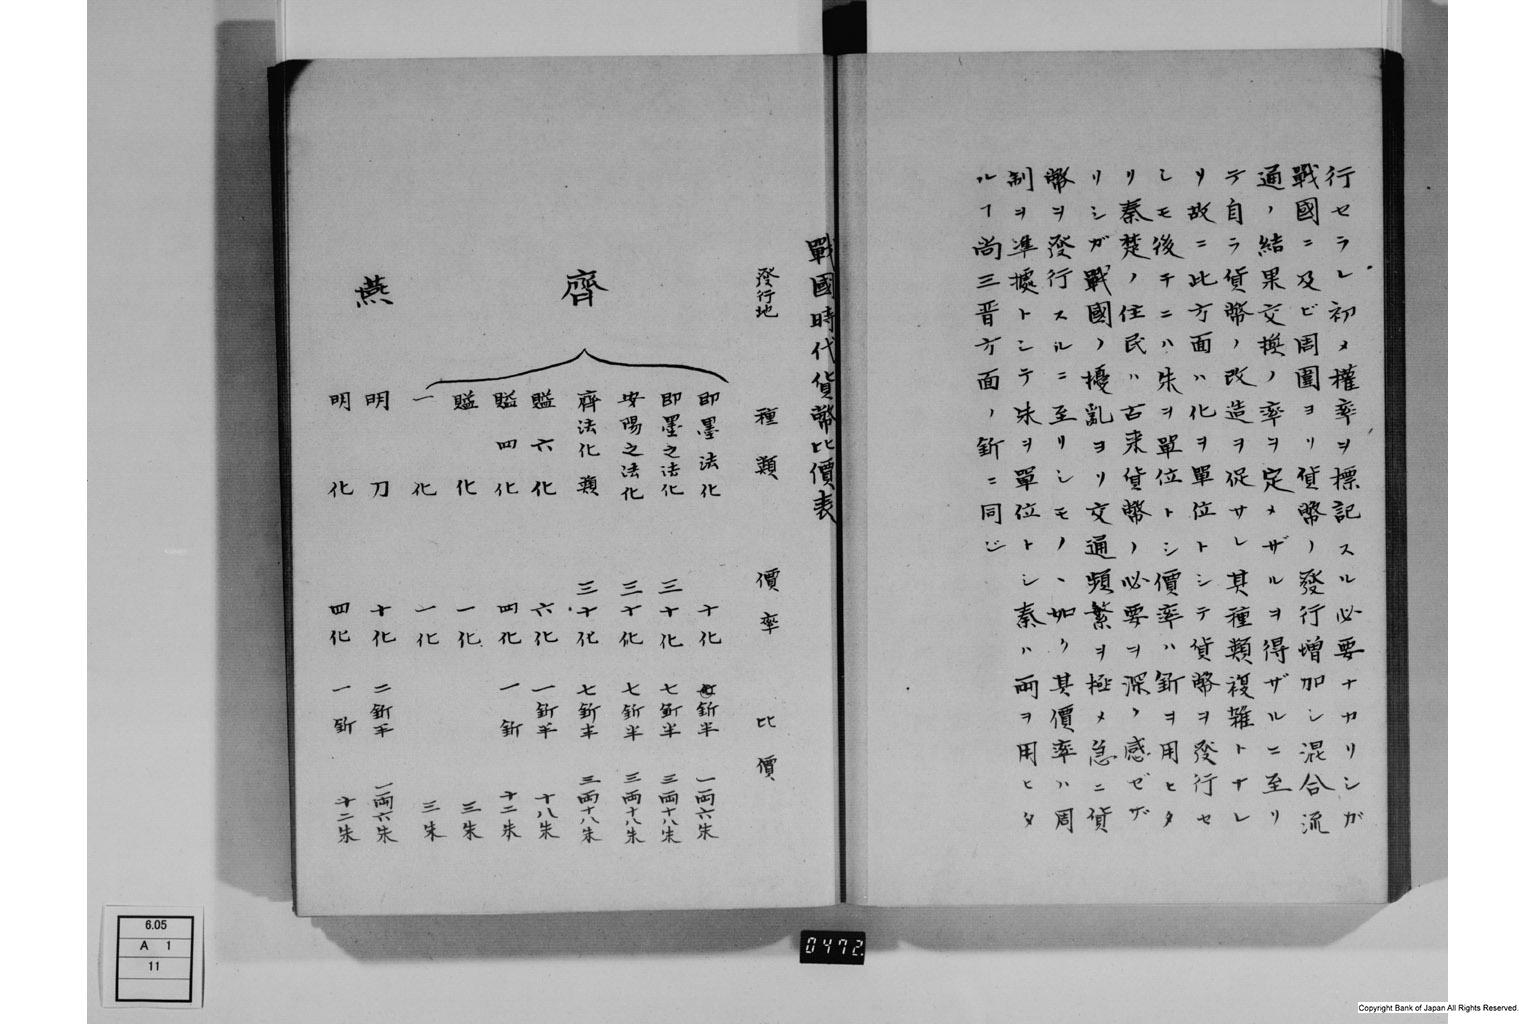 行セラレ初メ權率ヲ標記スル必要ナカリシガ
戰國ニ及ビ周圍ヨリ貨幣ノ發行增加シ混合流
通ノ結果交換ノ率ヲ定メザルヲ得ザルニ至リ
テ自ラ貨幣ノ改造ヲ促サレ其種類複雜トナレ
リ故ニ此方面ハ化ヲ單位トシテ貨幣ヲ發行セ
シモ後チニハ朱ヲ單位トシ價率ハ釿ヲ用ヒタ
リ秦楚ノ住民ハ古来貨幣ノ必要ヲ深ク感ゼザ
リシガ戰國ノ擾亂ヨリ交通頻繁ヲ極メ急ニ貨
幣ヲ發行スルニ至リシモノハ如ク其價率ハ周
制ヲ準據トシテ朱ヲ單位トシ秦ハ兩ヲ用ヒタ
ルㄱ尚三晋方面ノ釿ニ同ジ
戰國時代貨幣比價表
發行地 種類 價率 比價
齊
即墨法化 十化 釿半 一兩六朱
即墨之法化 三十化 七釿半 三兩十八朱
安陽之法化 三十化 七釿半 三兩十八朱
齊法化類 三十化 七釿半 三兩十八朱
賹六化 六化 一釿半 十八朱
賹四化 四化 一釿 十二朱
賹化 一化 三朱
一化 一化 三朱
燕
明刀 十化 二釿半 一兩六朱
明化 四化 一釿 十二朱
0472.
6.05
A 1
11
Copyright Bank of Japan All Rights Reserved.